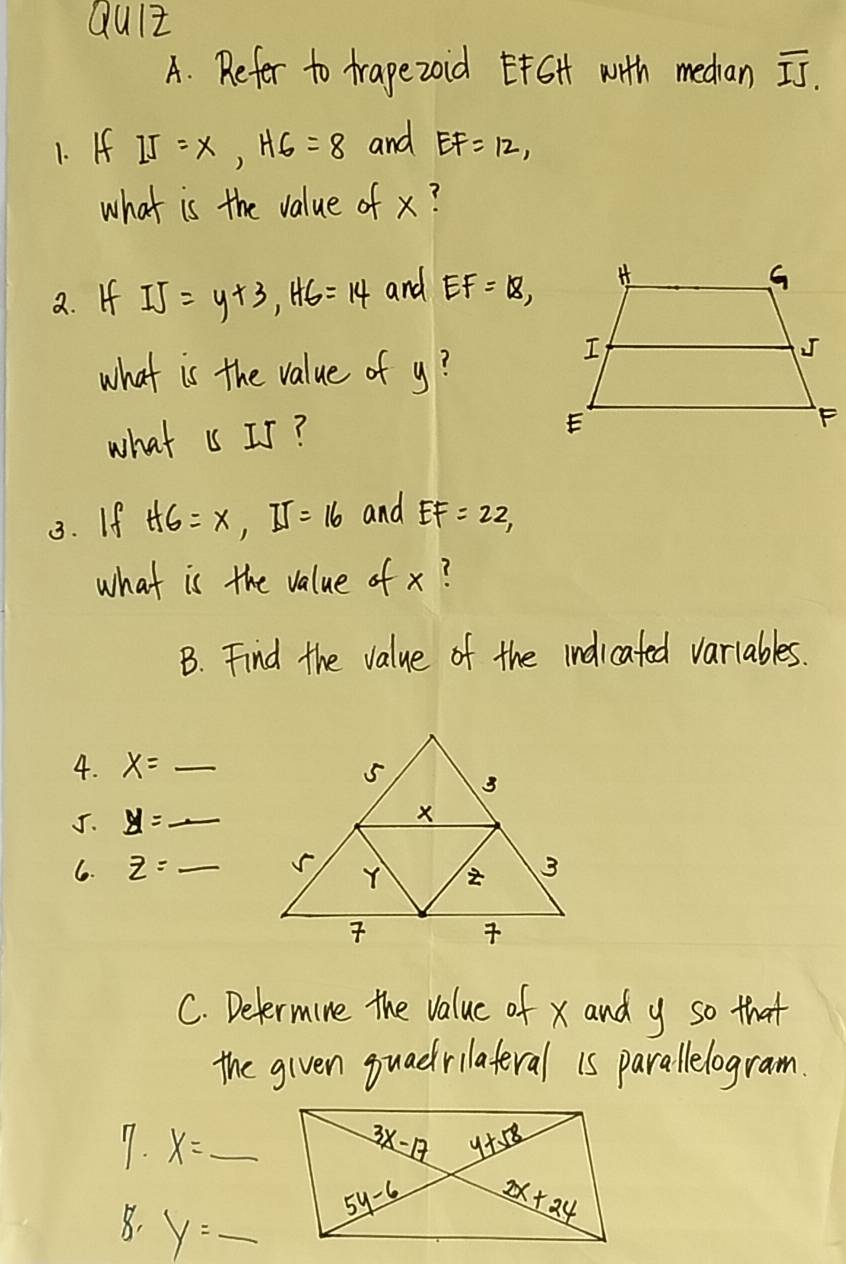 QUIZ
A. Refer to trapezoid EFGH with median IJ.
1. If IJ = x, HG = 8 and EF = 12,
what is the value of x?
2. If IJ = y+3, HG = 14 and EF = 18,
what is the value of y?
what is IJ?
H G
I J
E F
3. If HG = x, IJ = 16 and EF = 22,
what is the value of x?
B. Find the value of the indicated variables.
4. x = __
5. y = __
6. z = __
5 3
x
5 Y z 3
7 7
C. Determine the value of x and y so that
the given quadrilateral is parallelogram.
7. x = __
8. y = __
3x-17 y+58
5y-6 2x+24